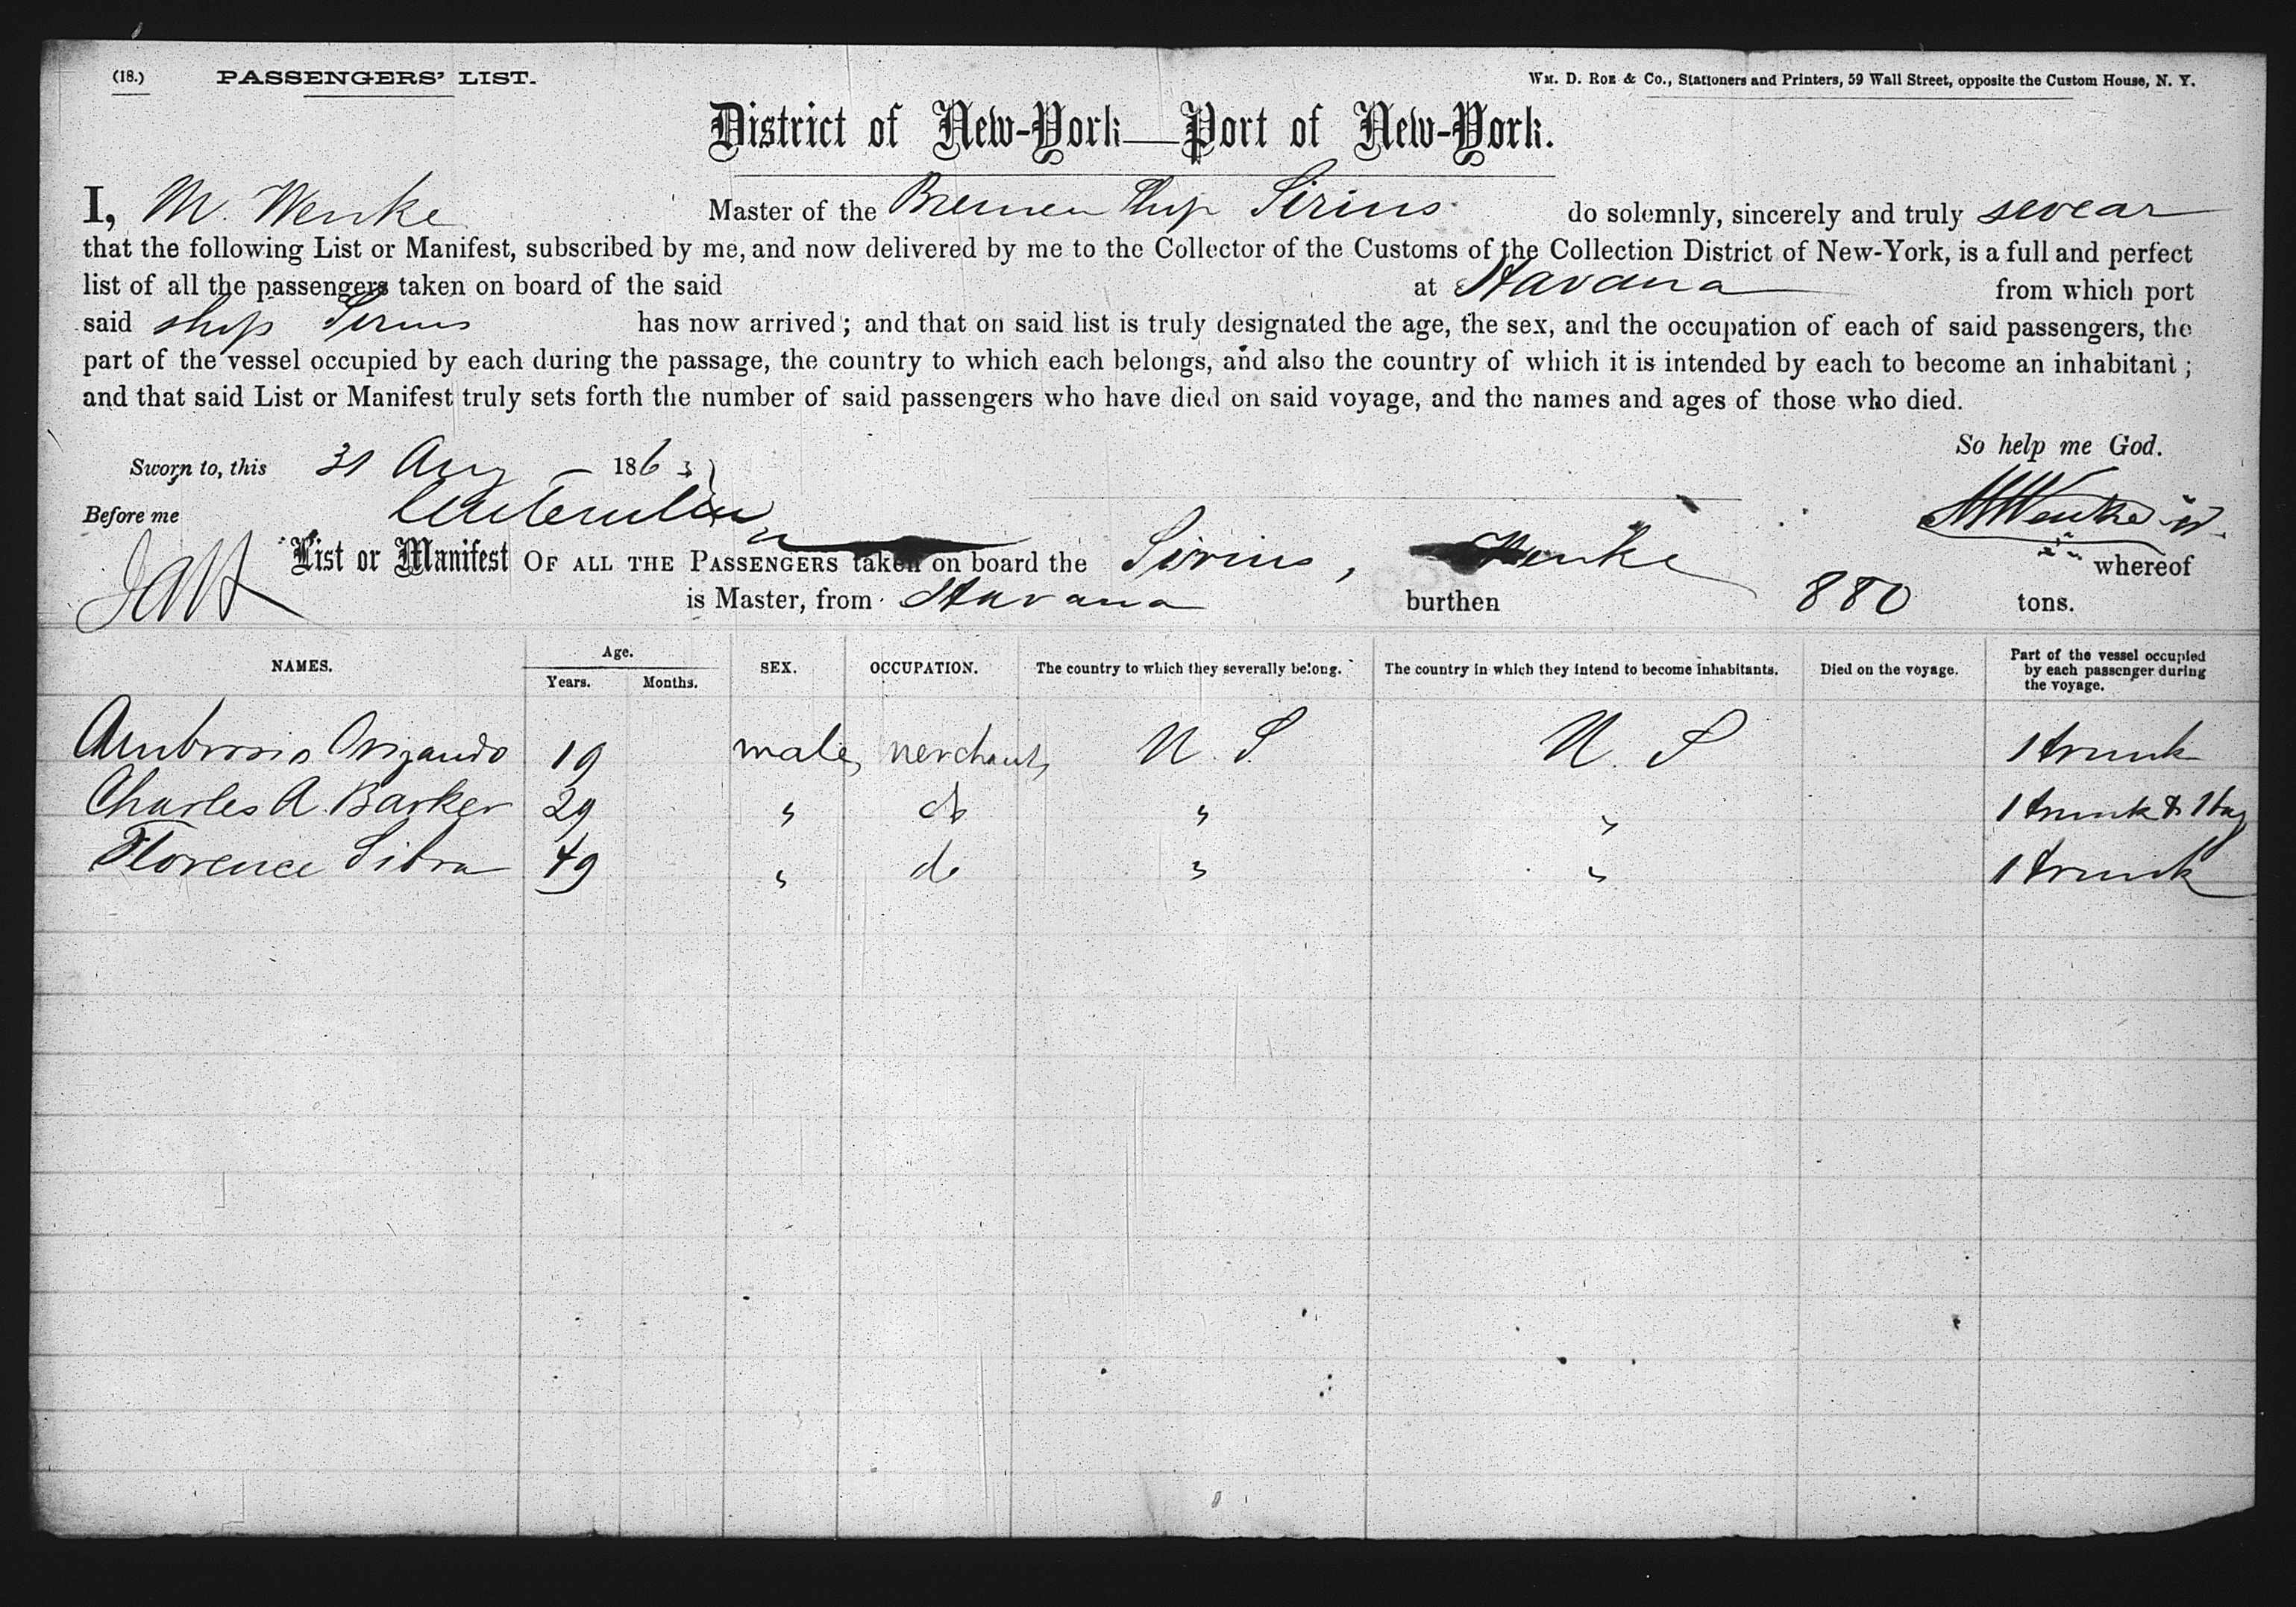 (18.) PASSENGERS' LIST. WM. D. ROE & Co., Stationers and Printers, 59 Wall Street, opposite the Custom House, N. Y.
District of New-York—Port of New-York.
I, M. Wenke Master of the Bremen Ship Sirius do solemnly, sincerely and truly swear
that the following List or Manifest, subscribed by me, and now delivered by me to the Collector of the Customs of the Collection District of New-York, is a full and perfect
list of all the passengers taken on board of the said at Havana from which port
said ship Sirius has now arrived; and that on said list is truly designated the age, the sex, and the occupation of each of said passengers, the
part of the vessel occupied by each during the passage, the country to which each belongs, and also the country of which it is intended by each to become an inhabitant;
and that said List or Manifest truly sets forth the number of said passengers who have died on said voyage, and the names and ages of those who died.
So help me God.
Sworn to, this 31 Aug 1863
Before me M Wenke
List or Manifest OF ALL THE PASSENGERS taken on board the Sirius, Wenke whereof
is Master, from Havana burthen 880 tons.
NAMES. Age. Years. Months. SEX. OCCUPATION. The country to which they severally belong. The country in which they intend to become inhabitants. Died on the voyage. Part of the vessel occupied by each passenger during the voyage.
Ambrosio 19 male, merchant, U. S. U. S 1 trunk
Charles A. Barker 29 " do " " 1 trunk & 1 bag
Florence Sibra 49 " do " " 1 trunk